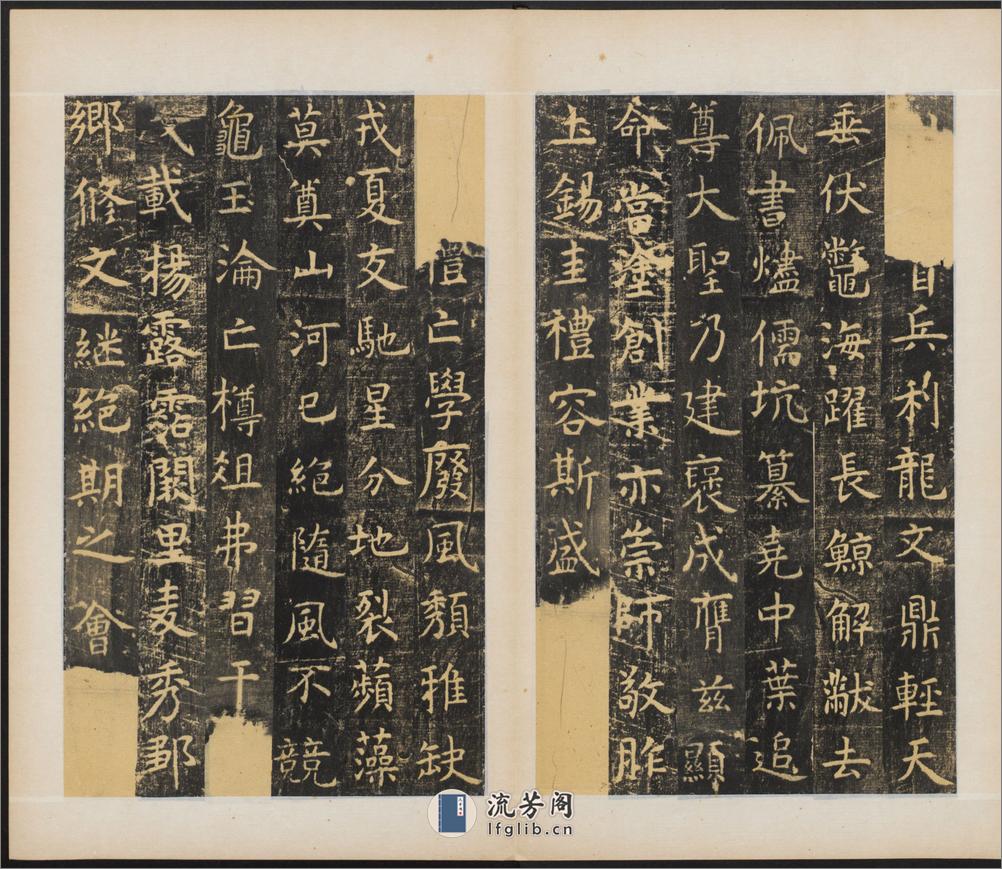 自兵利龍文鼎輕天
垂伏鼈海躍長鯨解黻去
佩書燼儒坑纂堯中葉追
尊大聖乃建褒成膺茲顯
命當塗創業亦崇師敬胙
土錫圭禮容斯盛
亡學廢風頹雅缺
戎夏交馳星分地裂蘋藻
莫奠山河已絕隨風不競
龜玉淪亡樽俎弗習干
載揚露霑闕里麦秀鄒
鄉修文継絕期之會
流芳阁
lfglib.cn